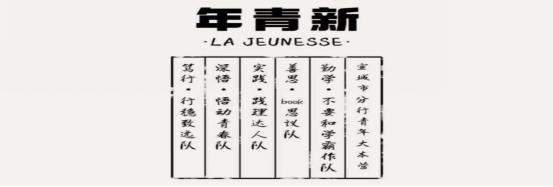 新青年
·LA JEUNESSE·
宣城市分行青年大本营
勤学·不要和学霸作队
善思·book思议队
实践·践理达人队
深悟·悟动青春队
笃行·行稳致远队